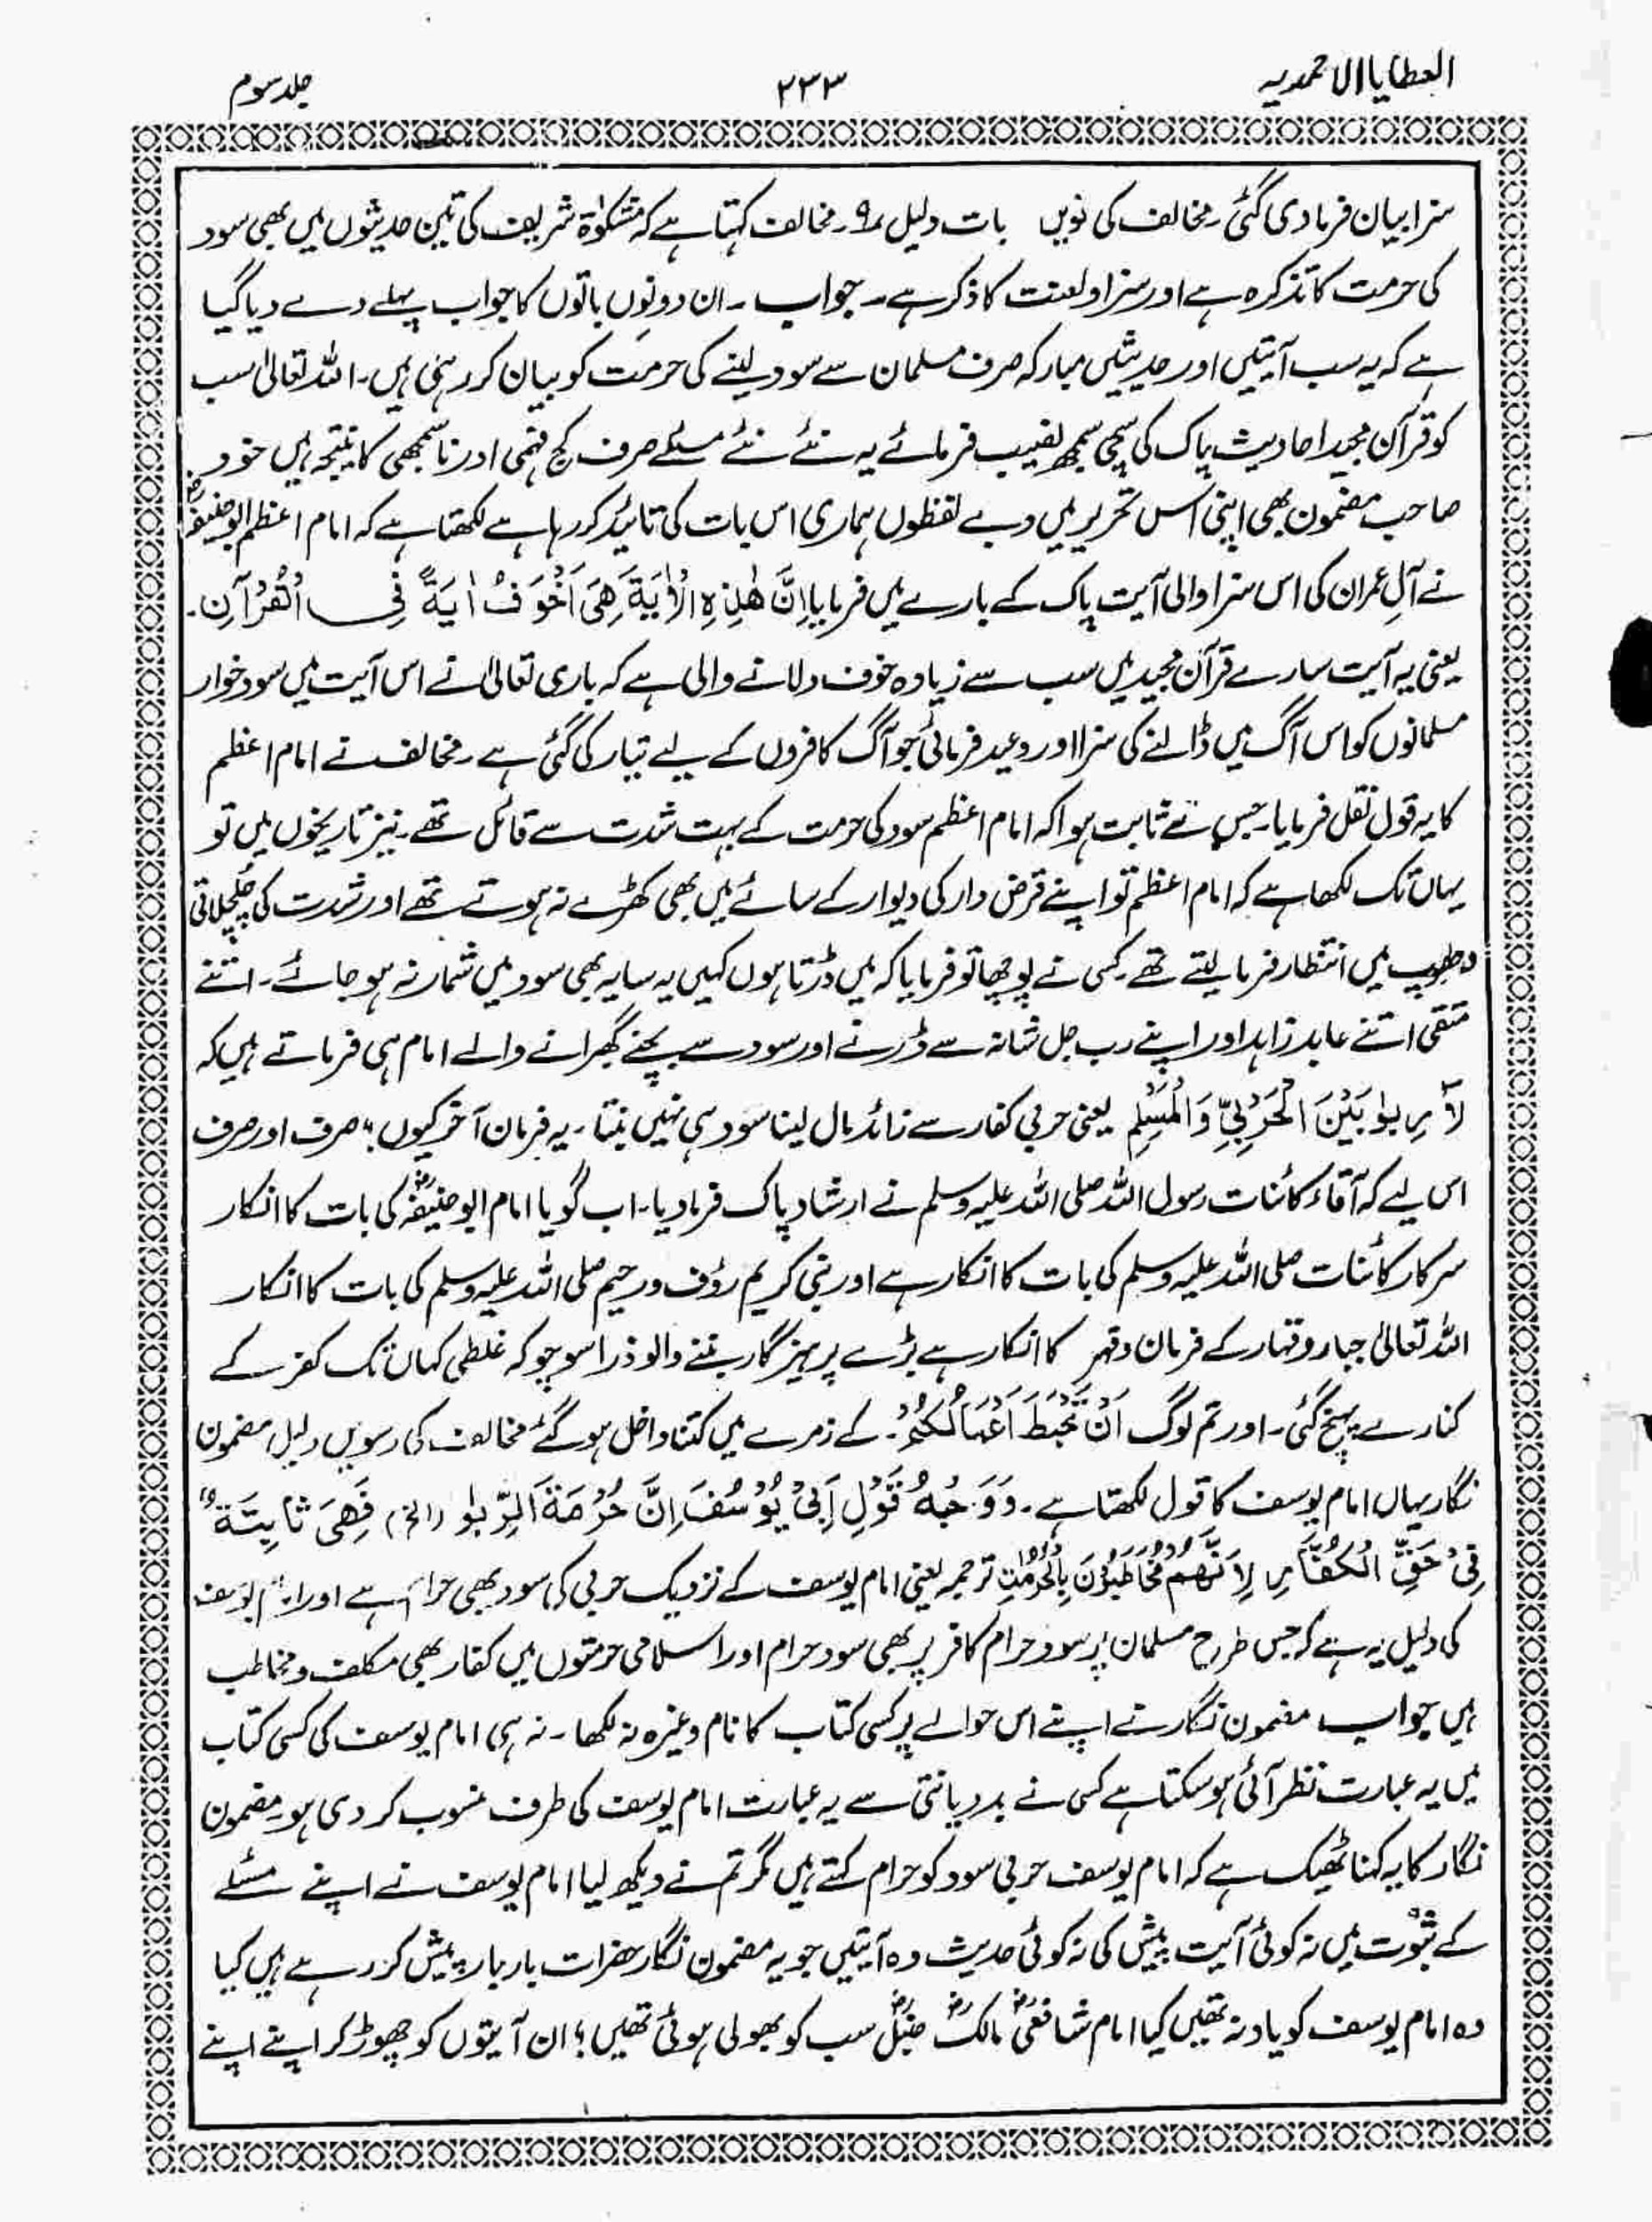 العطایا الاحمدیہ
۲۳۳
جلد سوم
سزا بیان فرما دی گئی۔ مخالف کی نویں بات دلیل ۹۔ مخالف کہتا ہے کہ مشکوٰۃ شریف کی تین حدیثوں میں بھی سود
کی حرمت کا تذکرہ ہے اور سزا و لعنت کا ذکر ہے۔ جواب۔ ان دونوں باتوں کا جواب پہلے دے دیا گیا
ہے کہ یہ سب آیتیں اور حدیثیں مبارکہ صرف مسلمان سے سود لینے کی حرمت کو بیان کر رہی ہیں۔ اللہ تعالیٰ سب
کو قرآن مجید احادیث پاک کی سچی سمجھ نصیب فرمائے یہ نئے نئے مسئلے صرف کج فہمی اور ناسمجھی کا نتیجہ ہیں خود
صاحب مضمون بھی اپنی اس تحریر میں دبے لفظوں ہماری اس بات کی تائید کر رہا ہے لکھتا ہے کہ امام اعظم ابو حنیفہؓ
نے آلِ عمران کی اس سزا والی آیت پاک کے بارے میں فرمایا اِنَّ ھٰذِہِ الْاٰیَۃَ ھِیَ اَخْوَفُ اٰیَۃً فِی الْقُرْآنِ۔
یعنی یہ آیت سارے قرآن مجید میں سب سے زیادہ خوف دلانے والی ہے کہ باری تعالیٰ نے اس آیت میں سود خوار
مسلمانوں کو اس آگ میں ڈالنے کی سزا اور وعید فرمائی جو آگ کافروں کے لیے تیار کی گئی ہے۔ مخالف نے امام اعظم
کا یہ قول نقل فرمایا۔ جس سے ثابت ہوا کہ امام اعظم سود کی حرمت کے بہت شدت سے قائل تھے۔ نیز تاریخوں میں تو
یہاں تک لکھا ہے کہ امام اعظم تو اپنے قرض دار کی دیوار کے سائے میں بھی کھڑے نہ ہوتے تھے اور شدت کی چلچلاتی
دھوپ میں انتظار فرما لیتے تھے۔ کسی نے پوچھا تو فرمایا کہ میں ڈرتا ہوں کہیں یہ سایہ بھی سود میں شمار نہ ہو جائے۔ اتنے
متقی اتنے عابد زاہد اور اپنے رب جل شانہ سے ڈرنے اور سود سے بچنے گھبرانے والے امام ہی فرماتے ہیں کہ
لَا رِبٰوا بَیْنَ الْحَرْبِیِّ وَالْمُسْلِمِ یعنی حربی کفار سے زائد مال لینا سود ہی نہیں بنتا۔ یہ فرمان آخر کیوں؟ صرف اور صرف
اس لیے کہ آقاء کائنات رسول اللہ صلی اللہ علیہ وسلم نے ارشاد پاک فرما دیا۔ اب گویا امام ابو حنیفہؓ کی بات کا انکار
سرکار کائنات صلی اللہ علیہ وسلم کی بات کا انکار ہے اور نبی کریم رؤف ورحیم صلی اللہ علیہ وسلم کی بات کا انکار
اللہ تعالیٰ جبار و قہار کے فرمان و قہر کا انکار ہے بڑے پرہیزگار بننے والو ذرا سوچو کہ غلطی کہاں تک کفر کے
کنارے پہنچ گئی۔ اور تم لوگ اَنْ تَحْبَطَ اَعْمَالُکُمْ۔ کے زمرے میں کتنا داخل ہو گئے مخالف کی دسویں دلیل مضمون
نگار یہاں امام یوسف کا قول لکھتا ہے۔ وَوَجْہُ قَوْلِ اَبِیْ یُوْسُفَ اِنَّ حُرْمَۃَ الرِّبٰوا (الخ) فَھِیَ ثَابِتَۃٌ
فِیْ حَقِّ الْکُفَّارِ لِاَنَّھُمْ مُخَاطَبُوْنَ بِالْحُرُمَاتِ ترجمہ یعنی امام یوسف کے نزدیک حربی کا سود بھی حرام ہے اور امام یوسف
کی دلیل یہ ہے کہ جس طرح مسلمان پر سود حرام کافر پر بھی سود حرام اور اسلامی حرمتوں میں کفار بھی مکلف و مخاطب
ہیں جواب مضمون نگار نے اپنے اس حوالے پر کسی کتاب کا نام وغیرہ نہ لکھا۔ نہ ہی امام یوسف کی کسی کتاب
میں یہ عبارت نظر آئی ہو سکتا ہے کسی نے بددیانتی سے یہ عبارت امام یوسف کی طرف منسوب کر دی ہو۔ مضمون
نگار کا یہ کہنا ٹھیک ہے کہ امام یوسف حربی سود کو حرام کہتے ہیں مگر تم نے دیکھ لیا امام یوسف نے اپنے مسئلے
کے ثبوت میں نہ کوئی آیت پیش کی نہ کوئی حدیث وہ آیتیں جو یہ مضمون نگار حضرات بار بار پیش کر رہے ہیں کیا
وہ امام یوسف کو یاد نہ تھیں کیا امام شافعیؒ مالکؒ حنبلؒ سب کو بھولی ہوئی تھیں؟ ان آیتوں کو چھوڑ کر اپنے اپنے